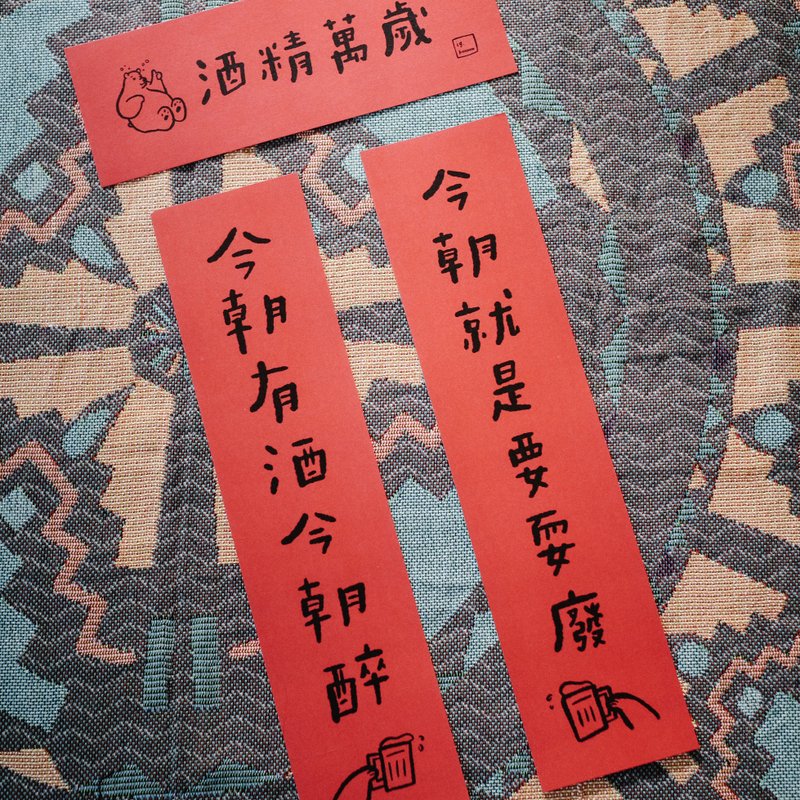 酒精萬歲
今朝有酒今朝醉
今朝就是要耍廢